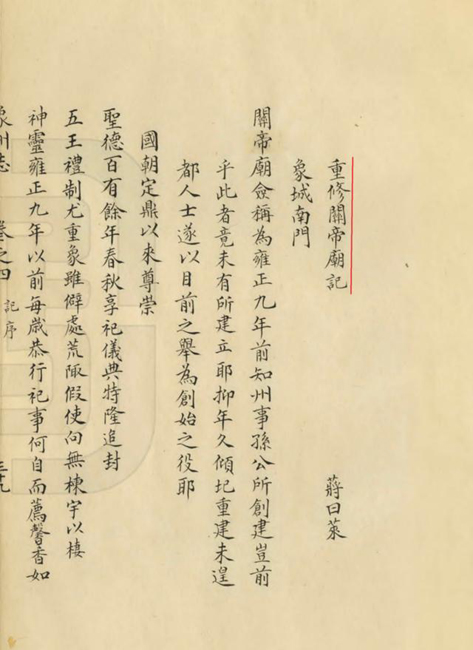 重修關帝廟記 蔣曰萊
象城南門
關帝廟僉稱為雍正九年前知州事孫公所創建豈前
乎此者竟未有所建立耶抑年久傾圮重建未遑
都人士遂以目前之舉為創始之役耶
國朝定鼎以來尊崇
聖德百有餘年春秋享祀儀典特隆追封
五王禮制尤重象雖僻處荒陬假使向無棟宇以棲
神靈雍正九年以前每歲恭行祀事何自而薦馨香如
象州志 卷之四 記序